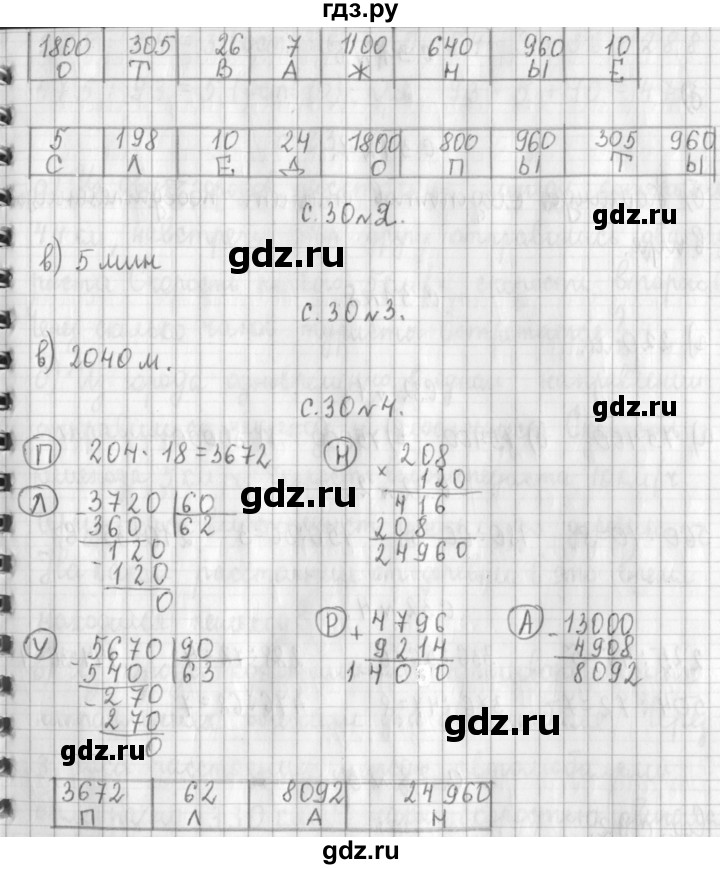 гдз.ру
1800 305 26 7 1100 640 960 10
О Т В А Ж Н Ы Е
5 198 10 24 1800 800 960 305 960
С Л Е Д О П Ы Т Ы
с.30 №2.
gdz.ru
в) 5 мин
gdz.ru
с.30 №3.
в) 2040 м.
с.30 №4.
gdz.ru
П 204·18=3672
Н 208
× 120
416
208
24960
gdz.ru
Л 3720 60
- 360 62
- 120
120
0
У 5670 90
- 540 63
- 270
270
0
Р + 4796
9214
14030
А - 13000
4908
8092
gdz.ru
gdz.ru
3672 62 8092 24960
П Л А Н
gdz.ru